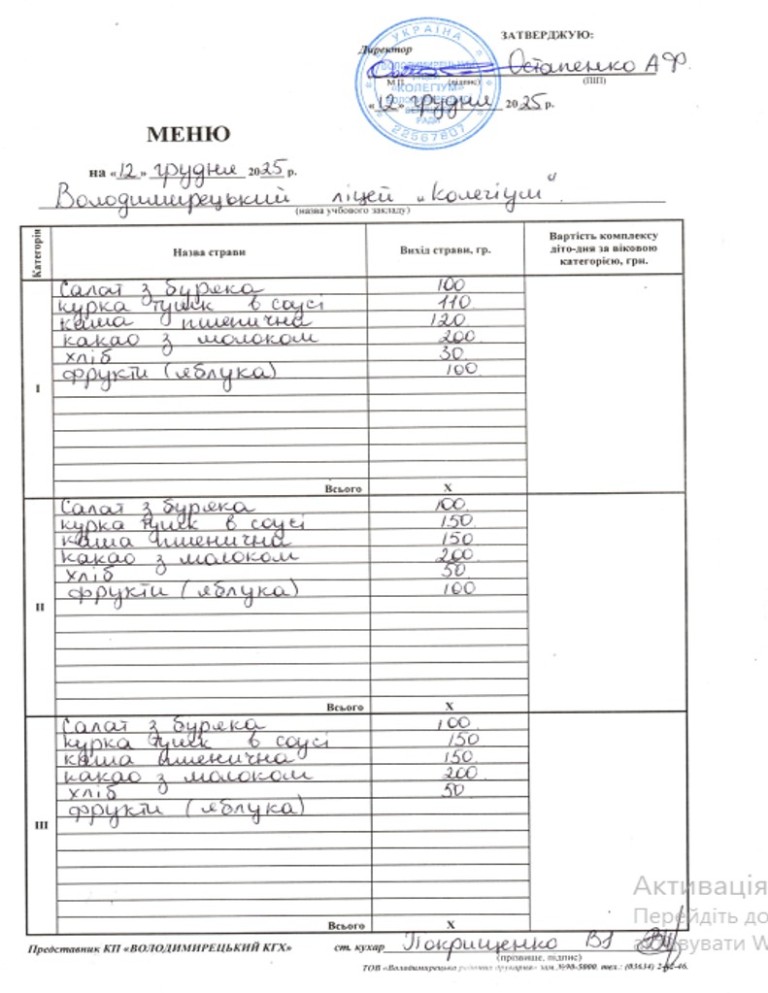 ЗАТВЕРДЖУЮ:
Директор Остапенко А Ф.
М.П. (підпис) (ПІП)
«12» грудня 2025 р.
УКРАЇНА
«КОЛЕГІУМ»
РАДИ
22567807
МЕНЮ
на «12» грудня 2025 р.
Володимирецький ліцей „Колегіум“.
(назва учбового закладу)
Категорія Назва страви Вихід страви, гр. Вартість комплексу літо-дня за віковою категорією, грн.
I
Салат з буряка 100
курка тушк в соусі 110
каша пшенична 120
какао з молоком 200
хліб 30
фрукти (яблука) 100
Всього X
II
Салат з буряка 100
курка тушк в соусі 150
каша пшенична 150
какао з молоком 200
хліб 50
фрукти (яблука) 100
Всього X
III
Салат з буряка 100
курка тушк в соусі 150
каша пшенична 150
какао з молоком 200
хліб 50
фрукти (яблука)
Всього X
Представник КП «ВОЛОДИМИРЕЦЬКИЙ КГХ» ст. кухар Покрищенко
(прізвище, підпис)
ТОВ «Володимирецька друкарня» зам.№90-5000. тел.: (03634)
Активація
Перейдіть до